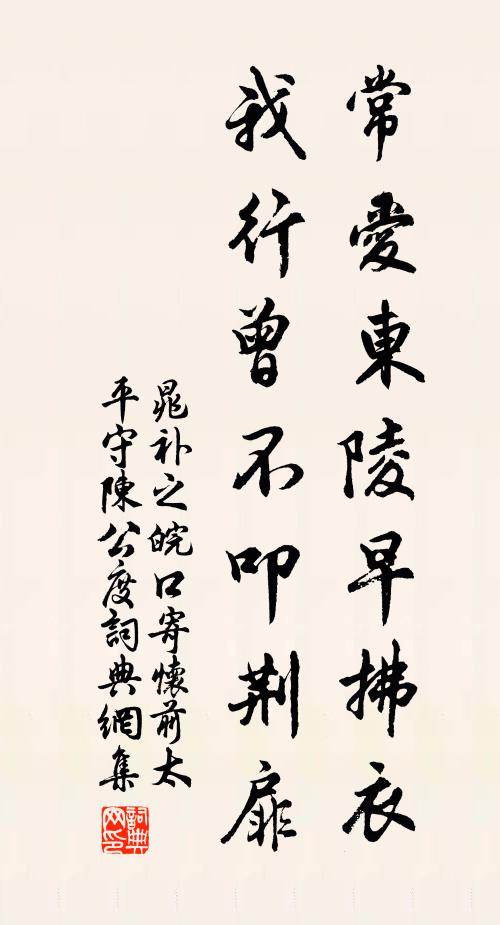 常愛東陵早拂衣
我行曾不叩荆扉
晁补之皖口寄懷前太
平守陳公度詞典網集
詞典
网印